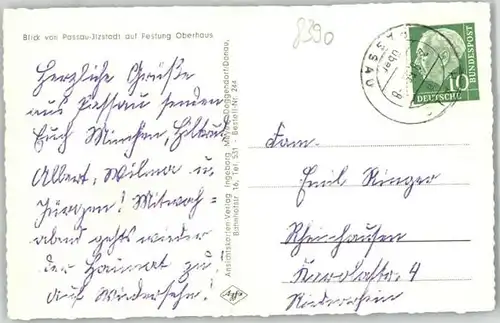 Blick von Passau-Ilzstadt auf Festung Oberhaus
8390
Herzliche Grüße
aus Passau senden
Euch Minchen, Hiltrud
Albert, Wilma u.
Jürgen! Mittwoch=
abend gehts wieder
der Heimat zu.
Auf Wiedersehn!
Ansichtskarten-Verlag Ingeborg Deggendorf/Donau,
Bahnhofstr. 16, Tel. 531 Bestell-Nr. 244
Agfa
PASSAU
10
DEUTSCHE
BUNDESPOST
Fam.
Emil Ringer
Rheinhausen
Karolastr. 4
Niederrhein